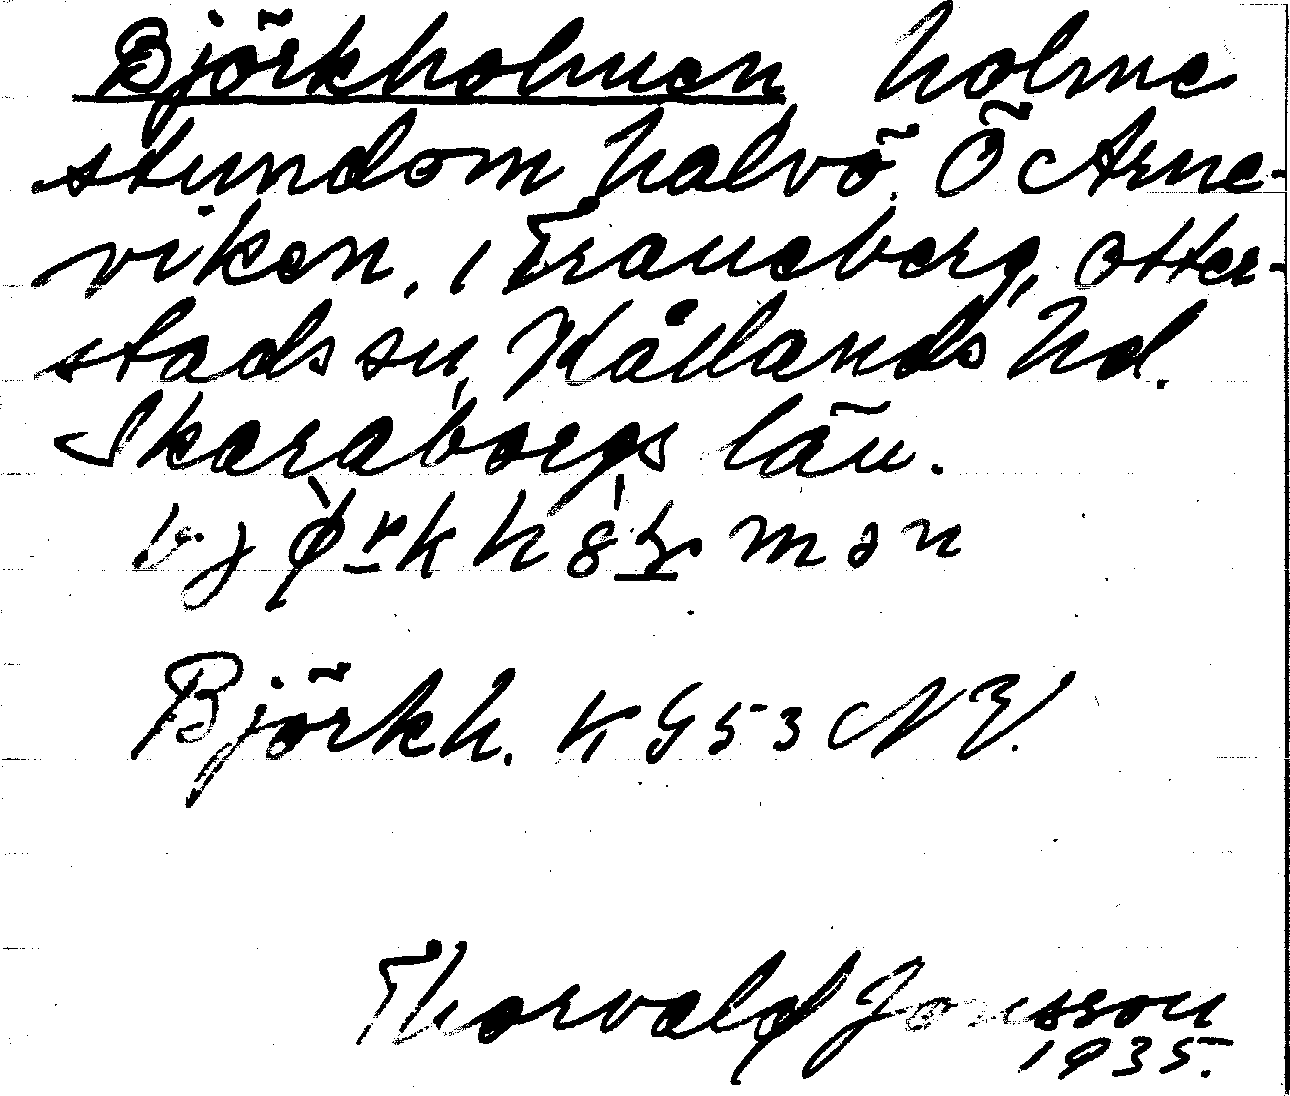 Björkholmen holme
stundom halvö. Ö Arne-
viken, i Traneberg, Otter-
stads sn, Kållands hd.
Skaraborgs län.
Björkh. KG 53 NV.
Thorvald Jonsson
1935.